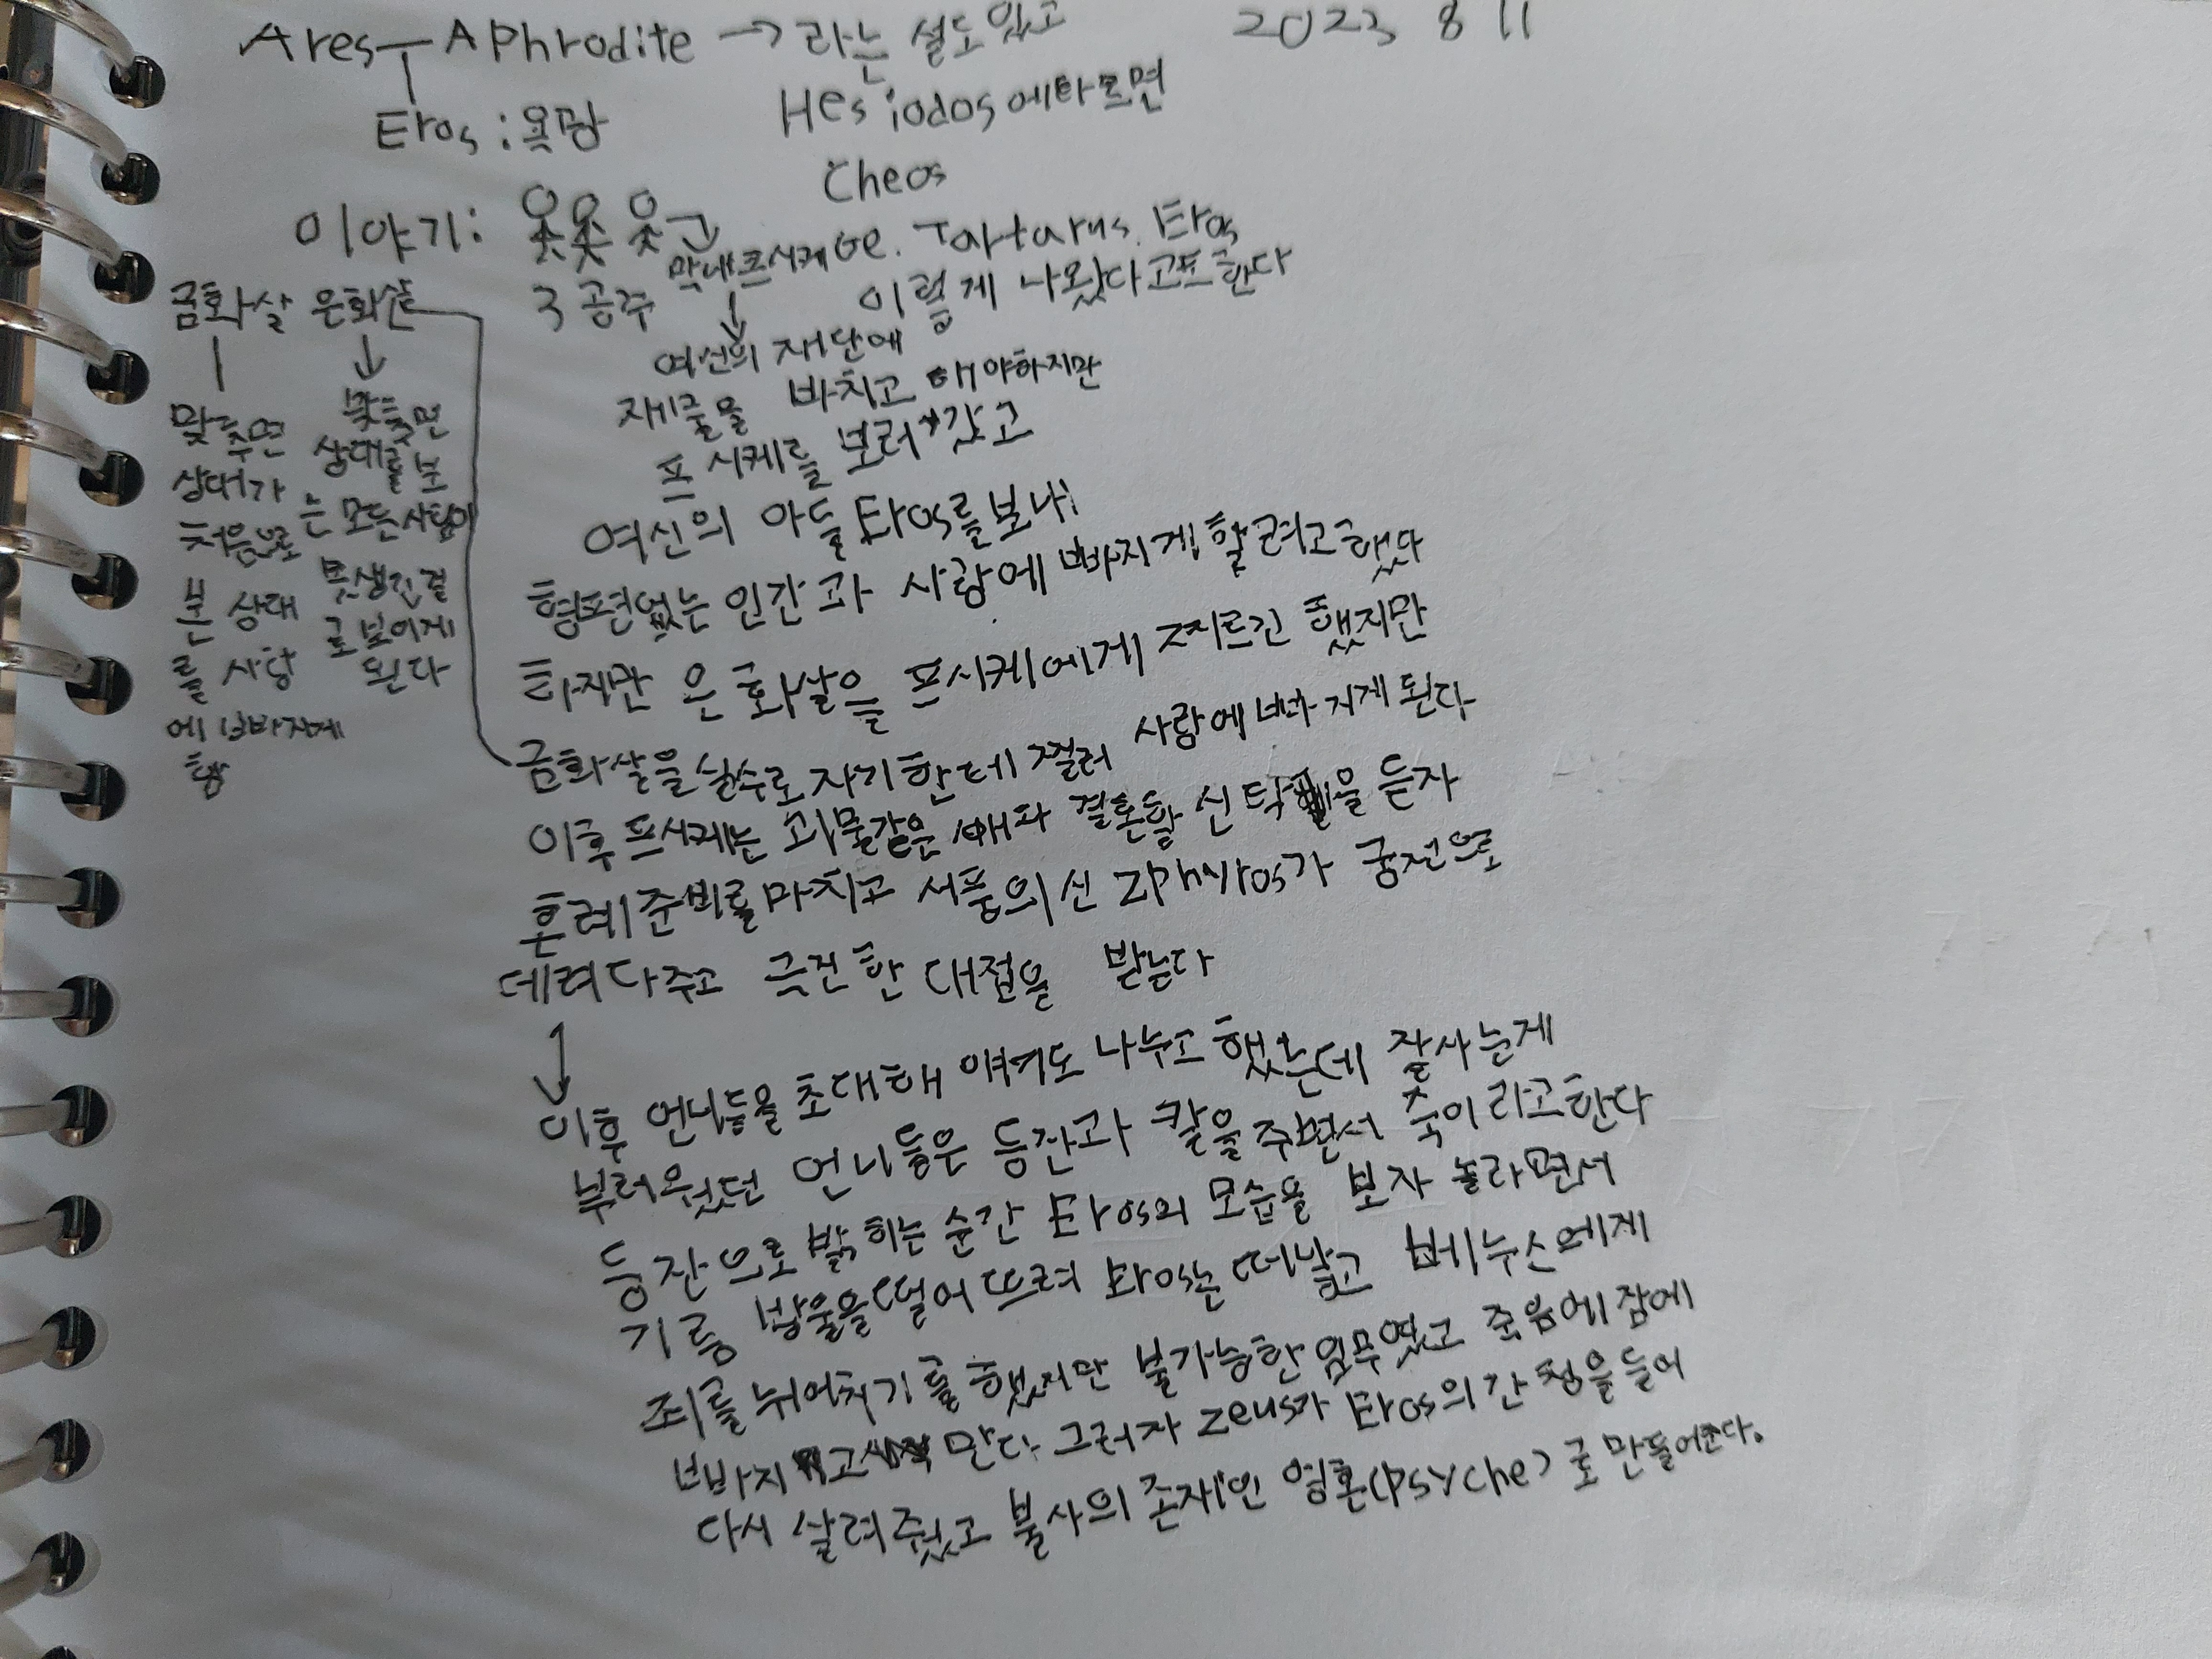 Ares Aphrodite → 라는 설도 있고
2023 8 11
Eros : 욕망
Hesiodos에 따르면
Cheos
Ge. Tartarus. Eros
이렇게 나왔다고도 한다
이야기:
3 공주
막내 프시케
↓
금화살 은화살
↓
맞추면
상대가
처음으로
본 상대
를 사랑
에 빠지게
함
맞추면
상대를 보
는 모든 사람이
못생긴걸
로 보이게
된다
여신의 재단에
재물을 바치고 해야하지만
프시케를 보러 갔고
여신의 아들 Eros를 보내
형편없는 인간과 사랑에 빠지게 할려고 했다
하지만 은화살을 프시케에게 찌르긴 했지만
금화살을 실수로 자기한테 찔러 사랑에 빠지게 된다
이후 프시케는 괴물같은 결혼할 신탁을 듣자
혼례준비를 마치고 서풍의 신 Zphyros가 궁전으로
데려다주고 극진한 대접을 받는다
↓
이후 언니들을 초대해 얘기도 나누고 했는데 잘사는게
부러웠던 언니들은 등잔과 칼을 주면서 죽이라고 한다
등잔으로 밝히는 순간 Eros의 모습을 보자 놀라면서
기름 방울을 떨어뜨려 Eros는 떠났고 베누스에게
죄를 뉘어치기를 했지만 불가능한 임무였고 죽음에 잠에
빠지고 만다 그러자 Zeus가 Eros의 간청을 들어
다시 살려줬고 불사의 존재인 영혼(psyche)로 만들어준다.